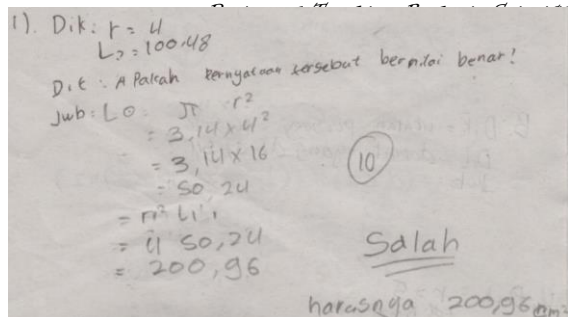 1). Dik: r = 4
L₂ = 100.48
Dit : Apakah Pernyataan tersebut bernilai benar!
Jwb: LO π r²
= 3,14 x 4²
= 3,14 x 16
= 50,24
= 4 50,24
= 200,96
10
Salah
harusnya 200,96